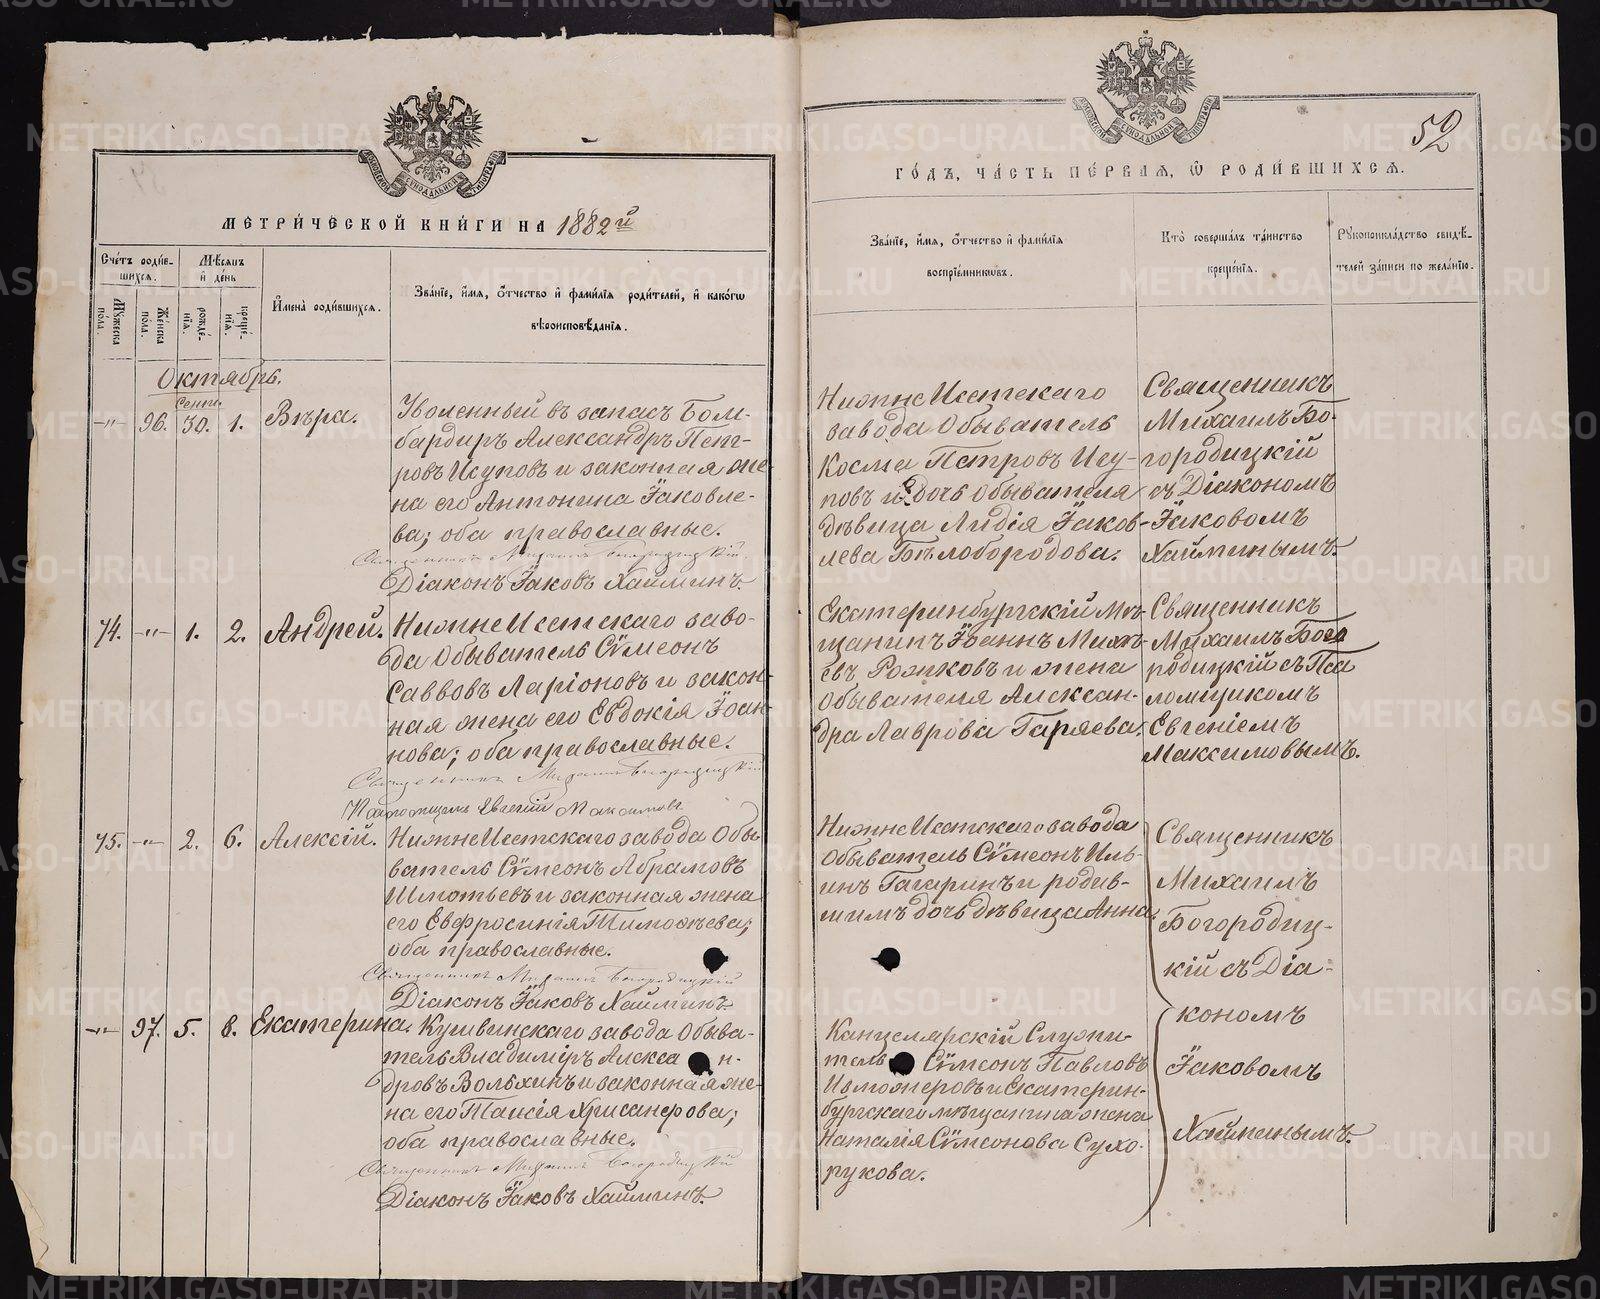 52
МЕТРИ́ЧЕСКОЙ КНИ́ГИ НА 1882й
ГО́ДЪ, ЧА́СТЬ ПЕ́РВАЯ, Ѡ РОДИ́ВШИХСЯ.
Сче́тъ роди́в-
шихся.
Мѹ́жеска по́ла.
Же́нска по́ла.
Мѣ́сяцъ и де́нь
рожде́-
нїя.
креще́-
нїя.
Имена̀ роди́вшихся.
Зва́нїе, и́мя, о́тчество и фами́лїя роди́телей, и како́гѡ
вѣроисповѣ́данїя.
Зва́нїе, и́мя, о́тчество и фами́лїя
воспрїе́мниковъ.
Кто̀ соверша́лъ та́инство
креще́нїя.
Рѹкоприкла́дство свидѣ́-
телей за́писи по жела́нїю.
Октябрь.
Сент.
-"- 96. 30. 1. Вѣра.
Уволенный въ запасъ Бом-
бардиръ Александръ Пет-
ровъ Исуповъ и законная же-
на его Антонина Іаковле-
ва; оба православные.
Священникъ Михаилъ Богородицкій
Діаконъ Іаковъ Хайминъ.
НижнеИсетскаго
завода Обыватель
Косма Петровъ Ису-
повъ и дочь обывателя
дѣвица Лидія Іаков-
лева Бѣлобородова.
Священникъ
Михаилъ Бо-
городицкій
съ Діакономъ
Іаковомъ
Хайминымъ.
74. -"- 1. 2. Андрей.
НижнеИсетскаго заво-
да Обыватель Сѷмеонъ
Саввовъ Ларіоновъ и закон-
ная жена его Евдокія Іоан-
нова; оба православные.
Священникъ Михаилъ Богородицкій
Псаломщикъ Евгеній Максимовъ
Екатеринбургскій мѣ-
щанинъ Іоаннъ Михѣ-
евъ Рожковъ и жена
Обывателя Алексан-
дра Лаврова Гаряева.
Священникъ
Михаилъ Бого
родицкій съ Пса
ломщикомъ
Евгеніемъ
Максимовымъ.
75. -"- 2. 6. Алексій.
НижнеИсетскаго завода Обы-
ватель Сѷмеонъ Абрамовъ
Шмотьевъ и законная жена
его Евфросинія Тимоѳѣева;
оба православные.
Священникъ Михаилъ Богородицкій
Діаконъ Іаковъ Хайминъ.
НижнеИсетскаго завода
Обыватель Сѷмеонъ Иль-
инъ Гагаринъ и родив-
шимъ дочь дѣвица Анна.
Священникъ
Михаилъ
Богородиц-
кій съ Діа-
кономъ
Іаковомъ
Хайминымъ.
-"- 97. 5. 8. Екатерина.
Кушвинскаго завода Обыва-
тель Владиміръ Алекса н-
дровъ Вольхинъ и законная же-
на его Таисія Хрисанфрова;
оба православные.
Священникъ Михаилъ Богородицкій
Діаконъ Іаковъ Хайминъ.
Канцелярскій Служи-
тель Сѷмеонъ Павловъ
Изможеровъ и Екатерин-
бургскаго мѣщанина жена
Наталія Сѷмеонова Сухо-
рукова.
METRIKI.GASO-URAL.RU